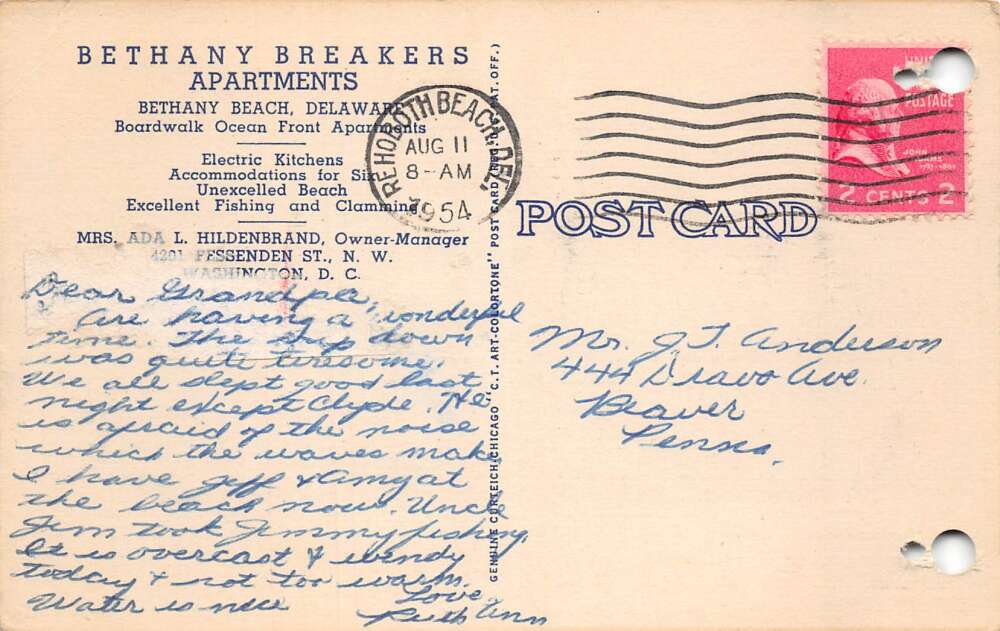 BETHANY BREAKERS
APARTMENTS
BETHANY BEACH, DELAWARE
Boardwalk Ocean Front Apartments
Electric Kitchens
Accommodations for Six
Unexcelled Beach
Excellent Fishing and Clamming
MRS. ADA L. HILDENBRAND, Owner-Manager
4201 FESSENDEN ST., N. W.
WASHINGTON, D. C.
Dear Grandpa,
Are having a wonderful
time. The trip down
was quite tiresome.
We all slept good last
night except Clyde. He
is afraid of the noise
which the waves make.
I have Jeff & Amy at
the beach now. Uncle
Jim took Jimmy fishing.
It is overcast & windy
today & not too warm.
Water is nice
Love,
Ruth Ann
GENUINE CURTEICH-CHICAGO "C. T. ART-COLORTONE" POST CARD (REG. U. S. PAT. OFF.)
REHOBOTH BEACH, DEL.
AUG 11
8-AM
1954
POST CARD
POSTAGE
JOHN
ADAMS
2 CENTS 2
Mr. J. T. Anderson
444 Dravo Ave.
Beaver
Penna.